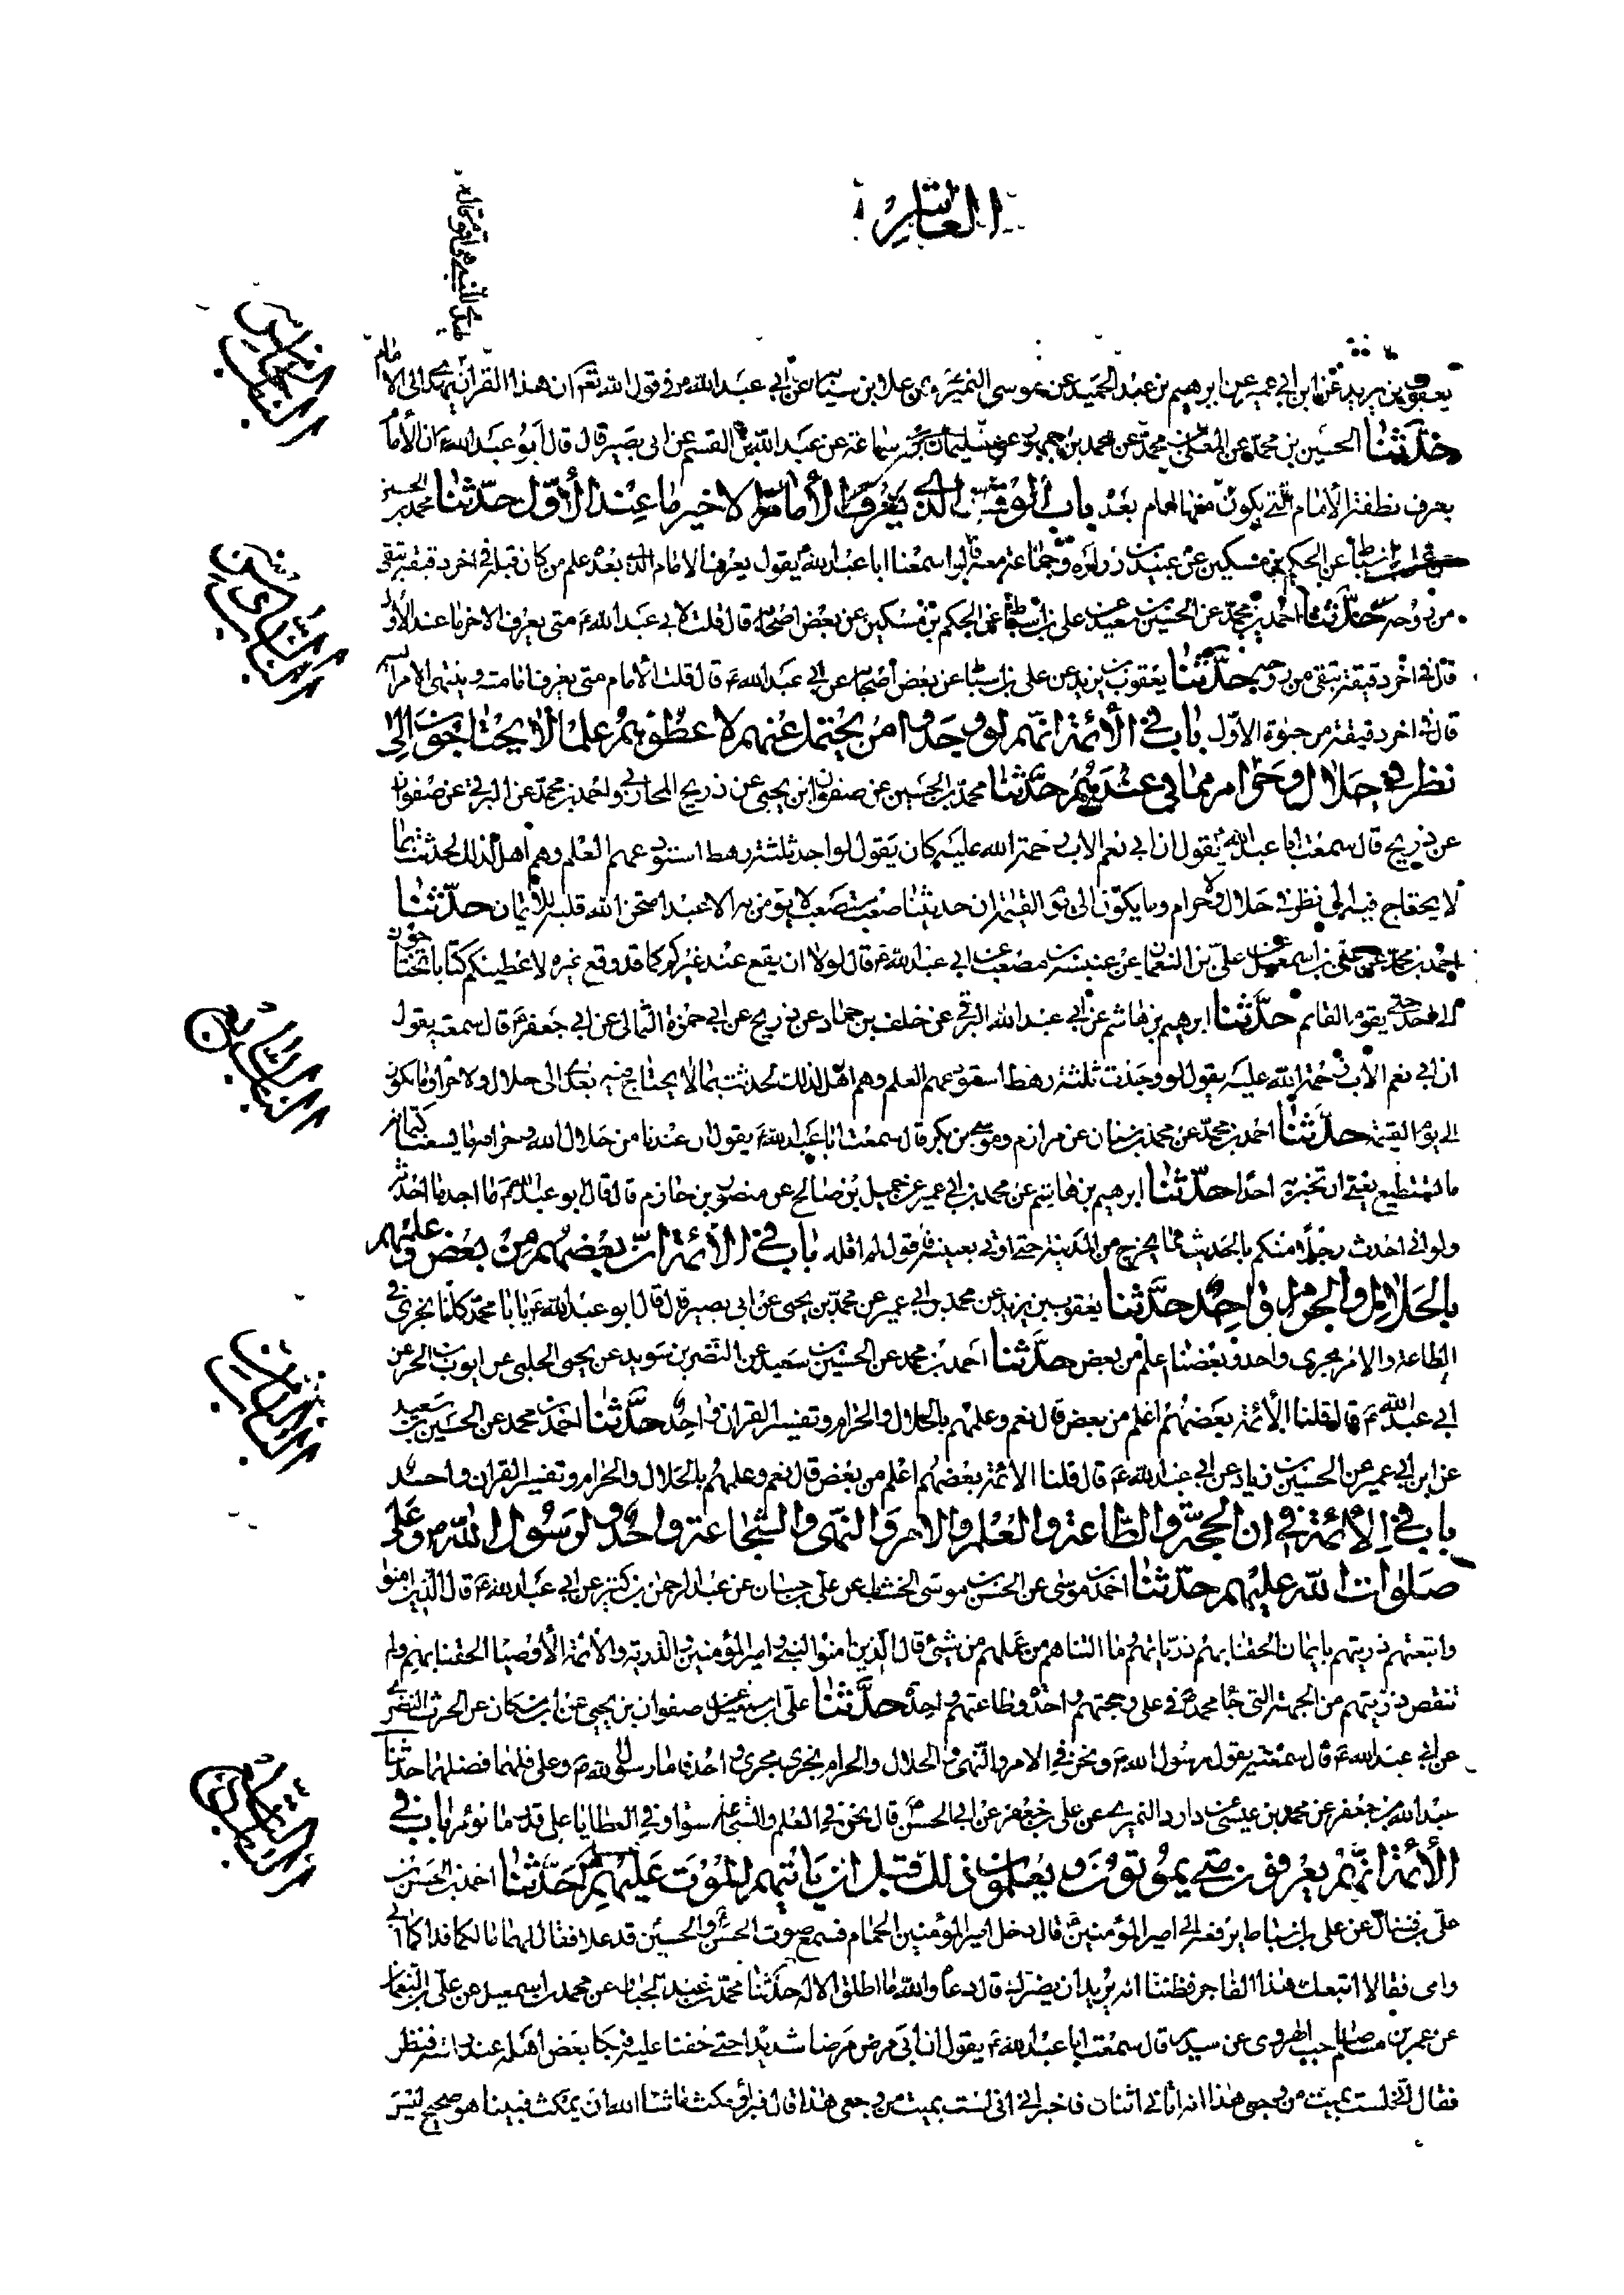 العاشر
يعقوب بن يزيد عن ابن ابي عمير عن ابرهيم بن عبد الحميد عن موسى النميري عن علا بن سيابة عن ابي عبد الله ع في قول الله تعم ان هذا القران يهدي الى الامام
حدثنا الحسين بن محمد عن المعلى بن محمد عن محمد بن جمهور عن سليمان بن سماعة عن عبد الله بن القسم عن ابى بصير قال قال ابو عبد الله ع ان الأمام
يعرف نطفة الإمام التي يكون منها امام بعد باب الوقت الذي يعرف الأمام الاخير ما عند الأول حدثنا محمد بن الحسين
عن علي بن اسباط عن الحكم بن مسكين عن عبيد بن زرارة وجماعة معه قالوا سمعنا ابا عبد الله ع يقول يعرف الامام الذي بعد علم من كان قبله في اخر دقيقة تبقى
من روحه حدثنا احمد بن محمد عن الحسين بن سعيد عن علي بن اسباط عن الحكم بن مسكين عن بعض اصحابه قال قلت لابي عبد الله ع متى يعرف الاخر ما عند الأول
قال في اخر دقيقة تبقى من روحه حدثنا يعقوب بن يزيد عن علي بن اسباط عن بعض اصحابه عن ابي عبد الله ع قال قلت الأمام متى يعرف امامته وينتهى الامر اليه
قال في اخر دقيقة من حيوة الاول باب في الأئمة انهم لو وجدوا من يحتمل عنهم لاعطوهم علما لا يحتاجون الى
نظر في حلال وحرام مما في عندهم حدثنا محمد بن الحسين عن صفوان ابن يحيى عن ذريح المحاربي واحمد بن محمد عن البرقي عن صفوان
عن ذريح قال سمعت ابا عبد الله ع يقول ان ابي نعم الاب رحمة الله عليه كان يقول لو اجد ثلثة رهط استودعهم العلم وهم اهل لذلك لحدثت بما
لا يحتاج فيه الى نظر في حلال ولا حرام وما يكون الى يوم القيمة ان حديثنا صعب مستصعب لا يؤمن به الا عبد امتحن الله قلبه للايمان حدثنا
احمد بن محمد عن علي بن اسمعيل عن علي بن النعمان عن عنبسة بن مصعب عن ابي عبد الله ع قال لولا ان يقع عند غيركم كما قد وقع غيره لاعطيتكم كتابا لا تحتاجون
الى احد حتى يقوم القايم حدثنا ابرهيم بن هاشم عن ابي عبد الله البرقي عن خلف بن حماد عن ذريح عن ابي حمزة الثمالى عن ابي جعفر ع قال سمعته يقول
ان ابي نعم الأب رحمة الله عليه يقول لو وجدت ثلثة رهط استودعهم العلم وهم اهل لذلك لحدثت بما لا يحتاج فيه بعدي الى حلال ولا حرام وما يكون
الى يوم القيمة حدثنا احمد بن محمد عن محمد بن سنان عن مرازم وموسى بن بكر قال سمعنا ابا عبد الله ع يقول ان عندنا من حلال الله وحرامه ما يسعنا كتمانه
ما نستطيع يعني ان نخبر به احدا حدثنا ابرهيم بن هاشم عن محمد بن ابي عمير عن جميل بن صالح عن منصور بن حازم قال قال ابو عبد الله ع ما اجد ما احدثه
ولو اني احدث رجلا منكم بالحديث فما يخرج من المدينة حتى اوتي بعينه فاقول لم اقله باب في الأئمة ان بعضهم من بعض وعلمهم
بالحلال والحرام واحد حدثنا يعقوب بن يزيد عن محمد بن ابي عمير عن محمد بن يحيى عن ابي بصير قال قال ابو عبد الله ع يابا محمد كلنا نجري في
الطاعة والامر مجرى واحد وبعضنا اعلم من بعض حدثنا احمد بن محمد عن الحسين بن سعيد عن النضر بن سويد عن يحيى الحلبي عن ايوب بن الحر عن
ابي عبد الله ع قال قلنا الأئمة بعضهم اعلم من بعض قال نعم وعلمهم بالحلال والحرام وتفسير القران واحد حدثنا احمد بن محمد عن الحسين بن سعيد
عن ابن ابي عمير عن الحسين بن زياد عن ابي عبد الله ع قال قلنا الأئمة بعضهم اعلم من بعض قال نعم وعلمهم بالحلال والحرام وتفسير القران واحد
باب في الأئمة في ان الحجة والطاعة والعلم والامر والنهى والشجاعة واحد لرسول الله ص وعلي
صلوات الله عليهم حدثنا احمد بن موسى عن الحسن بن موسى الخشاب عن علي بن حسان عن عبد الرحمن بن كثير عن ابي عبد الله ع قال الذين امنوا
واتبعتهم ذريتهم بايمان الحقنا بهم ذرياتهم وما التناهم من عملهم من شئ قال الذين امنوا النبي وامير المؤمنين والذرية والأئمة الأوصيا الحقنا بهم ولم
تنقص ذريتهم من الجهة التى جا محمد ص في على وحجتهم واحدة وطاعتهم واحدة حدثنا علي بن اسمعيل عن صفوان بن يحيى عن ابن مسكان عن الحرث النضري
عن ابي عبد الله ع قال سمعته يقول رسول الله ص ونحن في الامر والنهى والحلال والحرام نجري مجرى واحد فاما رسول الله ص وعلي فلهما فضلهما حدثنا
عبد الله بن جعفر عن محمد بن عيسى عن داود النميري عن علي بن جعفر عن ابي الحسن ع قال نحن في العلم والشجاعة سوا وفي العطايا على قدر ما نؤمر باب في
الأئمة انهم يعرفون متى يموتون ويعلمون ذلك قبل ان ياتيهم الموت عليهم حدثنا احمد بن الحسن بن
علي بن فضال عن علي بن اسباط يرفعه الى امير المؤمنين ع قال دخل امير المؤمنين الحمام فسمع صوت الحسن والحسين قد علا فقال لهما ما لكما فداكما ابي
وامي فقالا اتبعك هذا الفاجر فظننا انه يريد ان يضرك قال دعاه والله ما اطلق الا له حدثنا محمد بن عبد الجبار عن محمد بن اسمعيل عن علي بن النعمان
عن عمر بن مسلم صاحب الهروى عن سدير قال سمعت ابا عبد الله ع يقول ان ابي مرض مرضا شديدا حتى خفنا عليه فبكا بعض اهله عند راسه فنظر
فقال اني لست بميت من وجعى هذا انه اتاني اثنان فاخبراني اني لست بميت من وجعي هذا قال فبرأ ومكث ما شا الله ان يمكث فبينا هو صحيح ليس
الباب الثامن